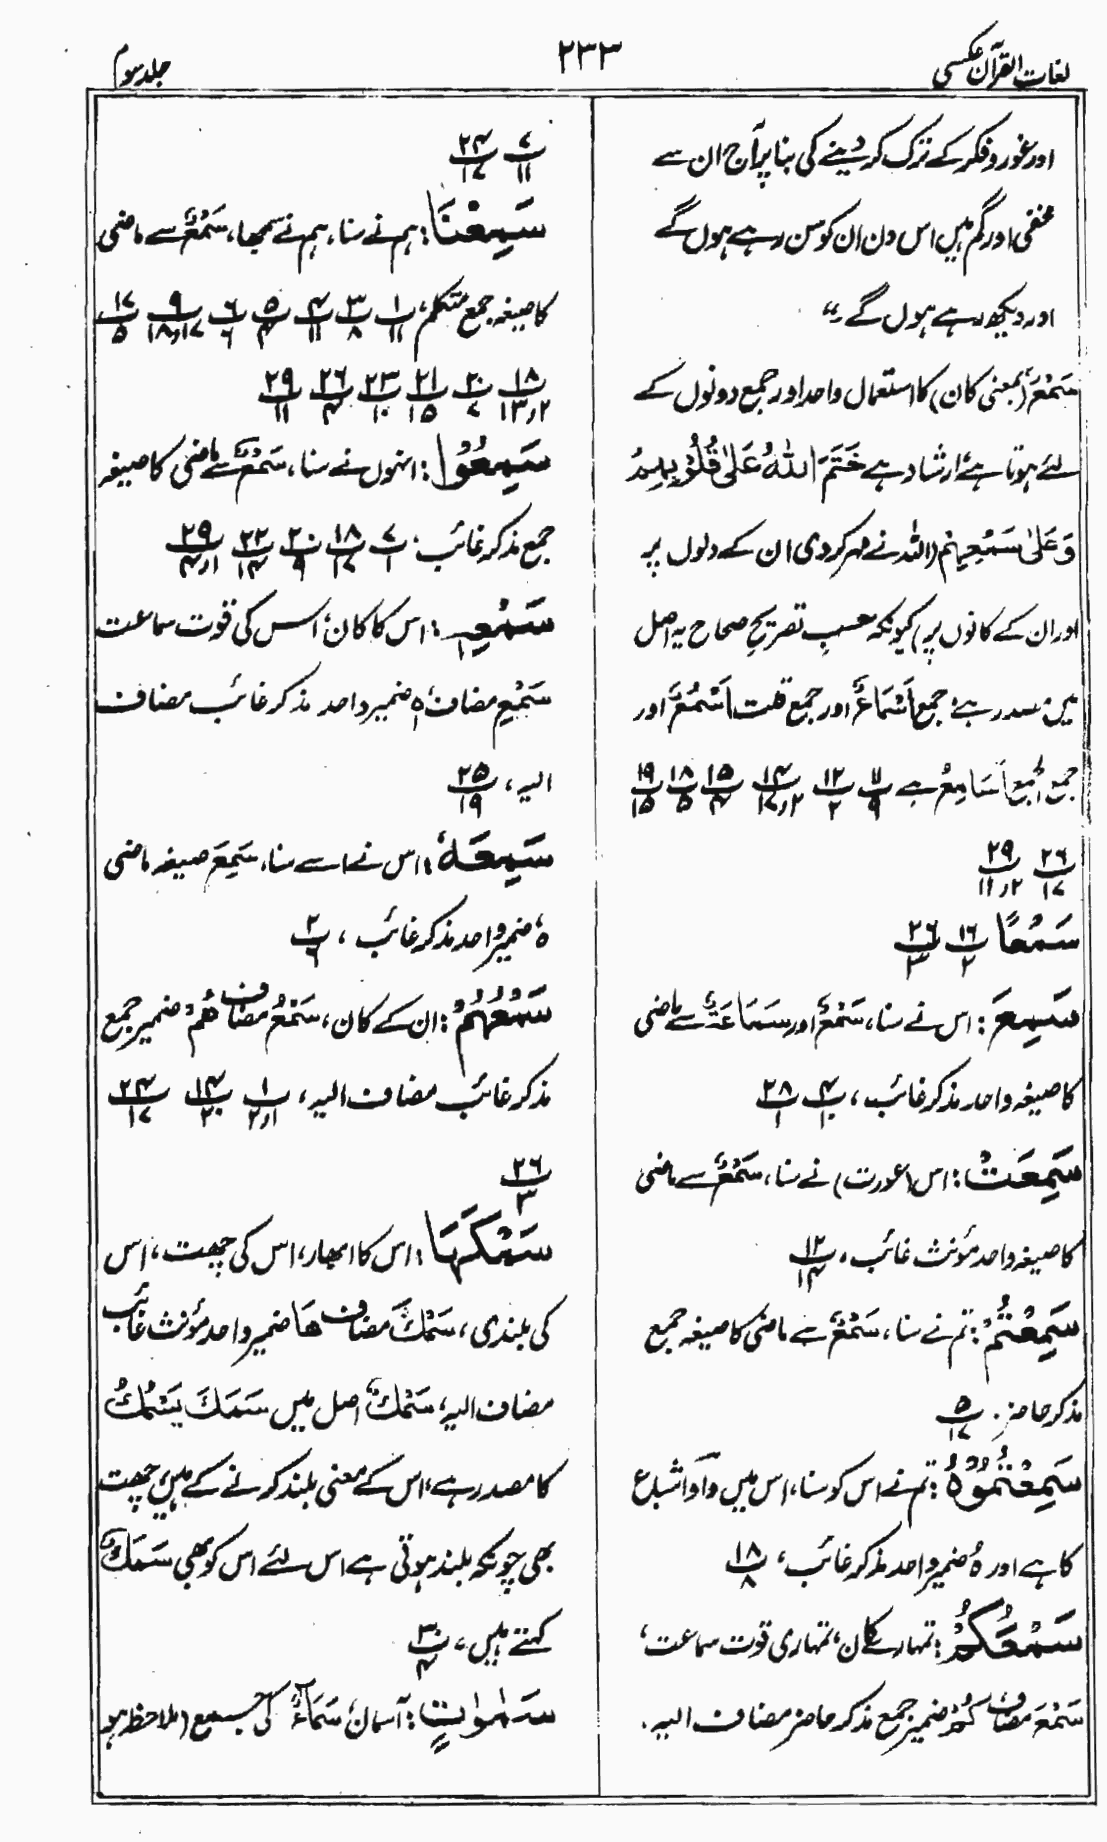 لغات القرآن عکسی
۲۳۳
جلد سوم
اور غور و فکر کے ترک کر دینے کی بنا پر آج ان سے
مخفی اور گم ہیں اس دن ان کو سن رہے ہوں گے
اور دیکھ رہے ہوں گے۔"
سَمْعٌ (بمعنی کان) کا استعمال واحد اور جمع دونوں کے
لئے ہوتا ہے، ارشاد ہے خَتَمَ اللهُ عَلیٰ قُلُوْبِهِمْ
وَعَلیٰ سَمْعِهِمْ (اللہ نے مہر کر دی ان کے دلوں پر
اور ان کے کانوں پر) کیونکہ حسبِ تصریحِ صحاح یہ اصل
میں مصدر ہے، جمع اَسْمَاعٌ اور جمع قلت اَسْمُعٌ اور
جمع الجمع اَسَامِعُ ہے ۱۱/۹ ۱۲/۲ ۱۴/۲ر۱۷ ۱۵/۴ ۱۸/۵ ۱۹/۱۵
۲۶/۱۷ ۲۹/۲ر۱۱
سَمْعًا ۱۶/۲ ۲۶/۳
سَمِعَ: اس نے سنا، سَمْعٌ اور سَمَاعَةٌ سے ماضی
کا صیغہ واحد مذکر غائب، ۴/۱۰ ۲۸/۱
سَمِعَتْ: اس (عورت) نے سنا، سَمْعٌ سے ماضی
کا صیغہ واحد مؤنث غائب، ۱۲/۱۴
سَمِعْتُمْ: تم نے سنا، سَمْعٌ سے ماضی کا صیغہ جمع
مذکر حاضر۔ ۵/۱۷
سَمِعْتُمُوْهُ: تم نے اس کو سنا، اس میں واو اشباع
کا ہے اور هُ ضمیر واحد مذکر غائب، ۱۸/۸
سَمْعُكُمْ: تمہارے کان، تمہاری قوت سماعت،
سَمْعَ مضاف كُمْ ضمیر جمع مذکر حاضر مضاف الیہ۔
۷/۱۱ ۲۴/۱۷
سَمِعْنَا: ہم نے سنا، ہم نے سمجھا، سَمْعٌ سے ماضی
کا صیغہ جمع متکلم، ۱/۱۱ ۳/۸ ۴/۱۱ ۵/۴ ۶/۶ ۹/۱۷ر۱۸ ۱۷/۵
۱۸/۲ر۱۳ ۲۰/۷ ۲۱/۱۵ ۲۳/۱۰ ۲۶/۴ ۲۹/۱۱
سَمِعُوْا: انہوں نے سنا، سَمْعٌ سے ماضی کا صیغہ
جمع مذکر غائب، ۷/۱ ۱۸/۱۷ ۲۰/۹ ۲۲/۱۴ ۲۹/۱ر۴
سَمْعِهٖ: اس کا کان، اس کی قوت سماعت
سَمْعِ مضاف، هٖ ضمیر واحد مذکر غائب مضاف
الیہ، ۲۵/۱۹
سَمِعَهٗ: اس نے اسے سنا، سَمِعَ صیغہ ماضی
هٗ ضمیر واحد مذکر غائب، ۲/۶
سَمْعُهُمْ: ان کے کان، سَمْعُ مضاف هُمْ ضمیر جمع
مذکر غائب مضاف الیہ، ۱/۱ر۲ ۱۴/۲۰ ۲۴/۱۷
۲۶/۳
سَمْكَهَا: اس کا ابھار، اس کی چھت، اس
کی بلندی، سَمْكَ مضاف هَا ضمیر واحد مؤنث غائب
مضاف الیہ، سَمْكٌ اصل میں سَمَكَ يَسْمُكُ
کا مصدر ہے، اس کے معنی بلند کرنے کے ہیں، چھت
بھی چونکہ بلند ہوتی ہے اس لئے اس کو بھی سَمْكٌ
کہتے ہیں، ۳۰/۴
سَمٰوٰتٍ: آسمان، سَمَاءٌ کی جمع (ملاحظہ ہو